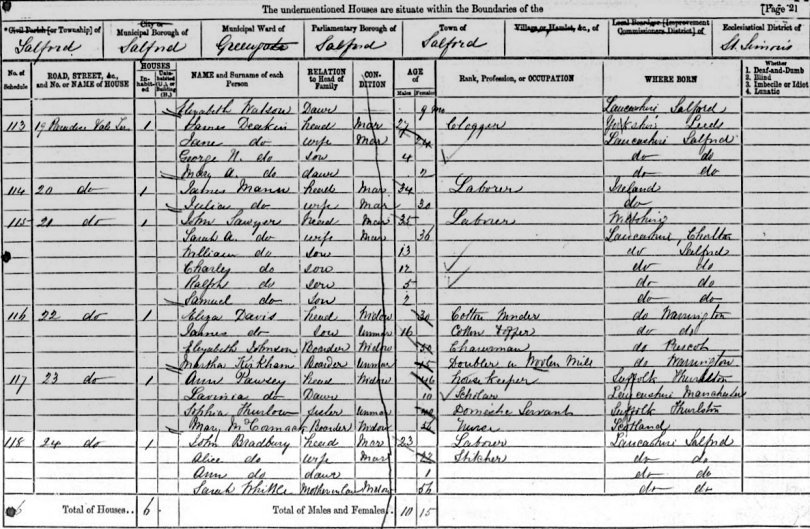 The undermentioned Houses are situate within the Boundaries of the [Page 2
Civil Parish [or Township] of City or Municipal Borough of Municipal Ward of Parliamentary Borough of Town of Village or Hamlet, &c., of Local Board, or [Improvement Commissioners District] of Ecclesiastical District of
Salford Salford Greengate Salford Salford St. Simons
No. of Schedule ROAD, STREET, &c., and No. or NAME of HOUSE HOUSES Inhabited Uninhabited (U.), or Building (B.) NAME and Surname of each Person RELATION to Head of Family CONDITION AGE of Males Females Rank, Profession, or OCCUPATION WHERE BORN Whether 1. Deaf-and-Dumb 2. Blind 3. Imbecile or Idiot 4. Lunatic
Elizabeth Watson Daur 9 mo Lancashire Salford
113 19 Paradise 1 James Deakin head Mar 27 Clogger Yorkshire Leeds
Jane do wife Mar 24 Lancashire Salford
George H. do son 4 do do
Mary A. do daur 2 do do
114 20 do 1 James Mann head Mar 34 Laborer Ireland
Julia do wife Mar 30 do
115 21 do 1 John Sawyer head Mar 35 Laborer Wiltshire
Sarah A. do wife Mar 36 Lancashire, Chorlton
William do son 13 do Salford
Charley do son 12 do do
Ralph do son 5 do do
Samuel do son 2 do do
116 22 do 1 Eliza Davis head Widow 30 Cotton Winder do Warrington
James do son Unmar 16 Cotton do do
Elizabeth Johnson Boarder Widow Charwoman do Prescot
Martha Kirkham Boarder Unmar Doubler in Woolen Mill do Warrington
117 23 do 1 Ann Pawsey head Widow 46 House Keeper Suffolk Thurlston
Lavinia do Daur 10 Scholar Lancashire Manchester
Sophia Thurlow Sister Unmar 40 Domestic Servant Suffolk Thurlston
Mary McCormack Boarder Widow Nurse Scotland
118 24 do 1 John Bradbury head Mar 23 Laborer Lancashire Salford
Alice do wife Mar 22 Stitcher do do
Ann do daur 1 do do
Sarah Whittle Mother in law Widow 56 do do
6 Total of Houses.. 6 Total of Males and Females.. 10 15